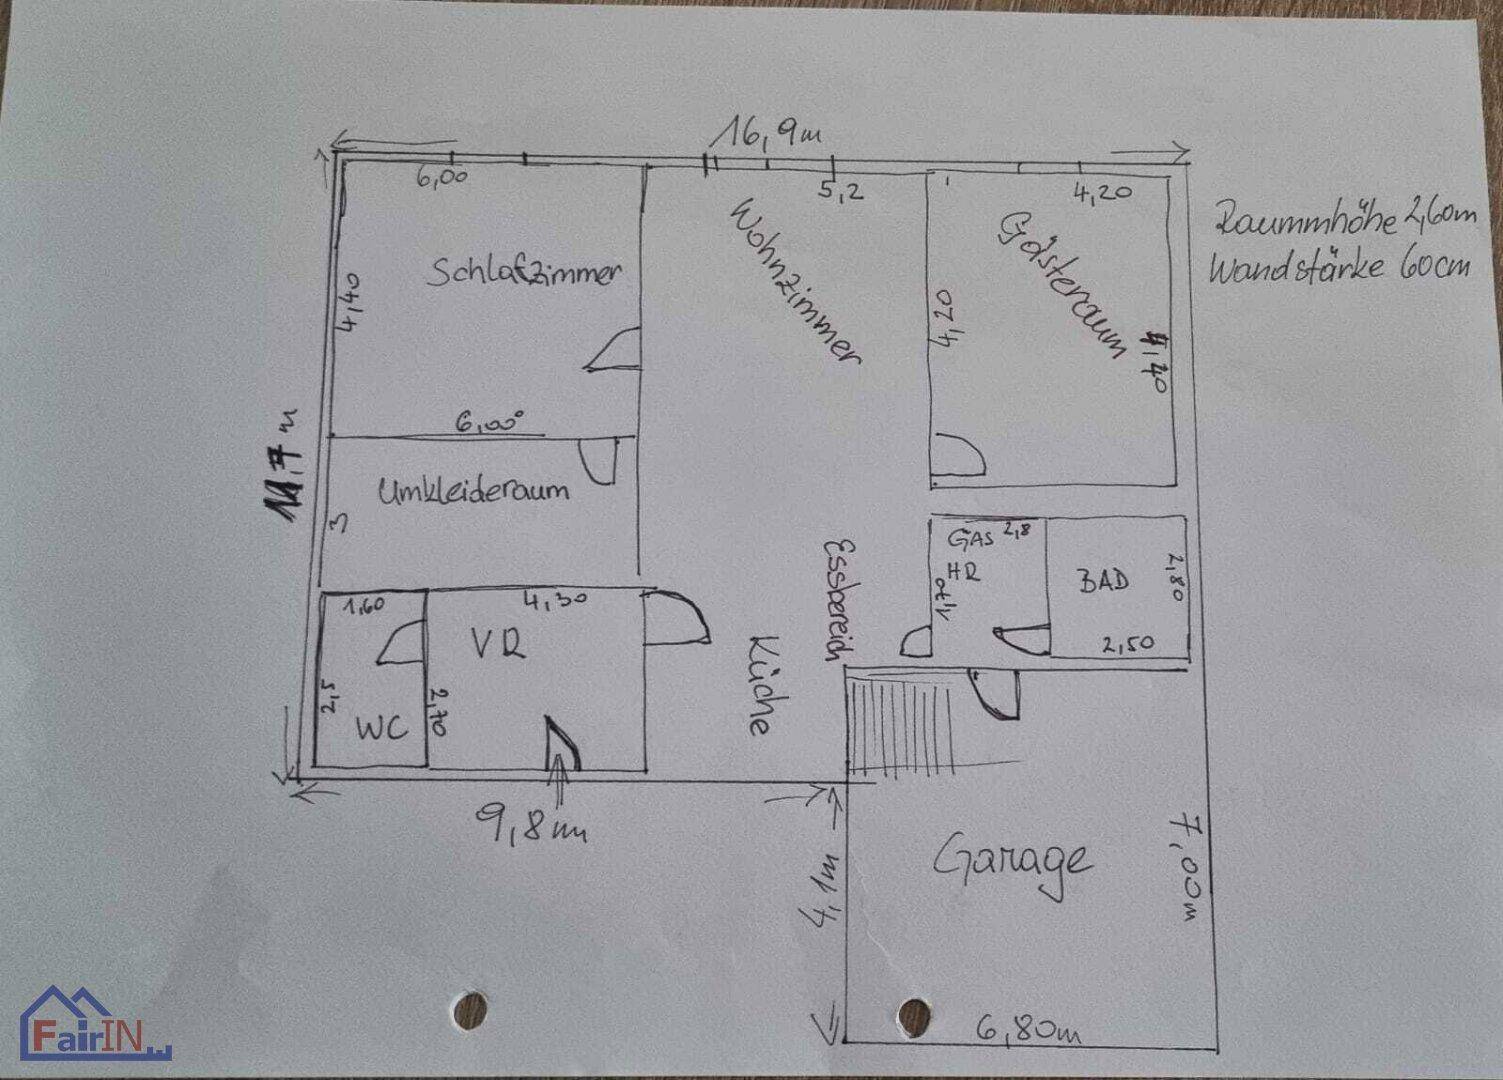 16,9m
6,00
5,2
4,20
Raummhöhe 2,60m
Wandstärke 60cm
Schlafzimmer
Wohnzimmer
Gästeraum
4,40
4,20
6,00
11,7 m
Umkleideraum
3
Essbereich
GAS 2,8
HR
BAD
2,80
2,50
1,60
4,30
VR
Küche
2,5
WC
2,70
9,8m
4,1m
Garage
7,00m
6,80m
FairIN